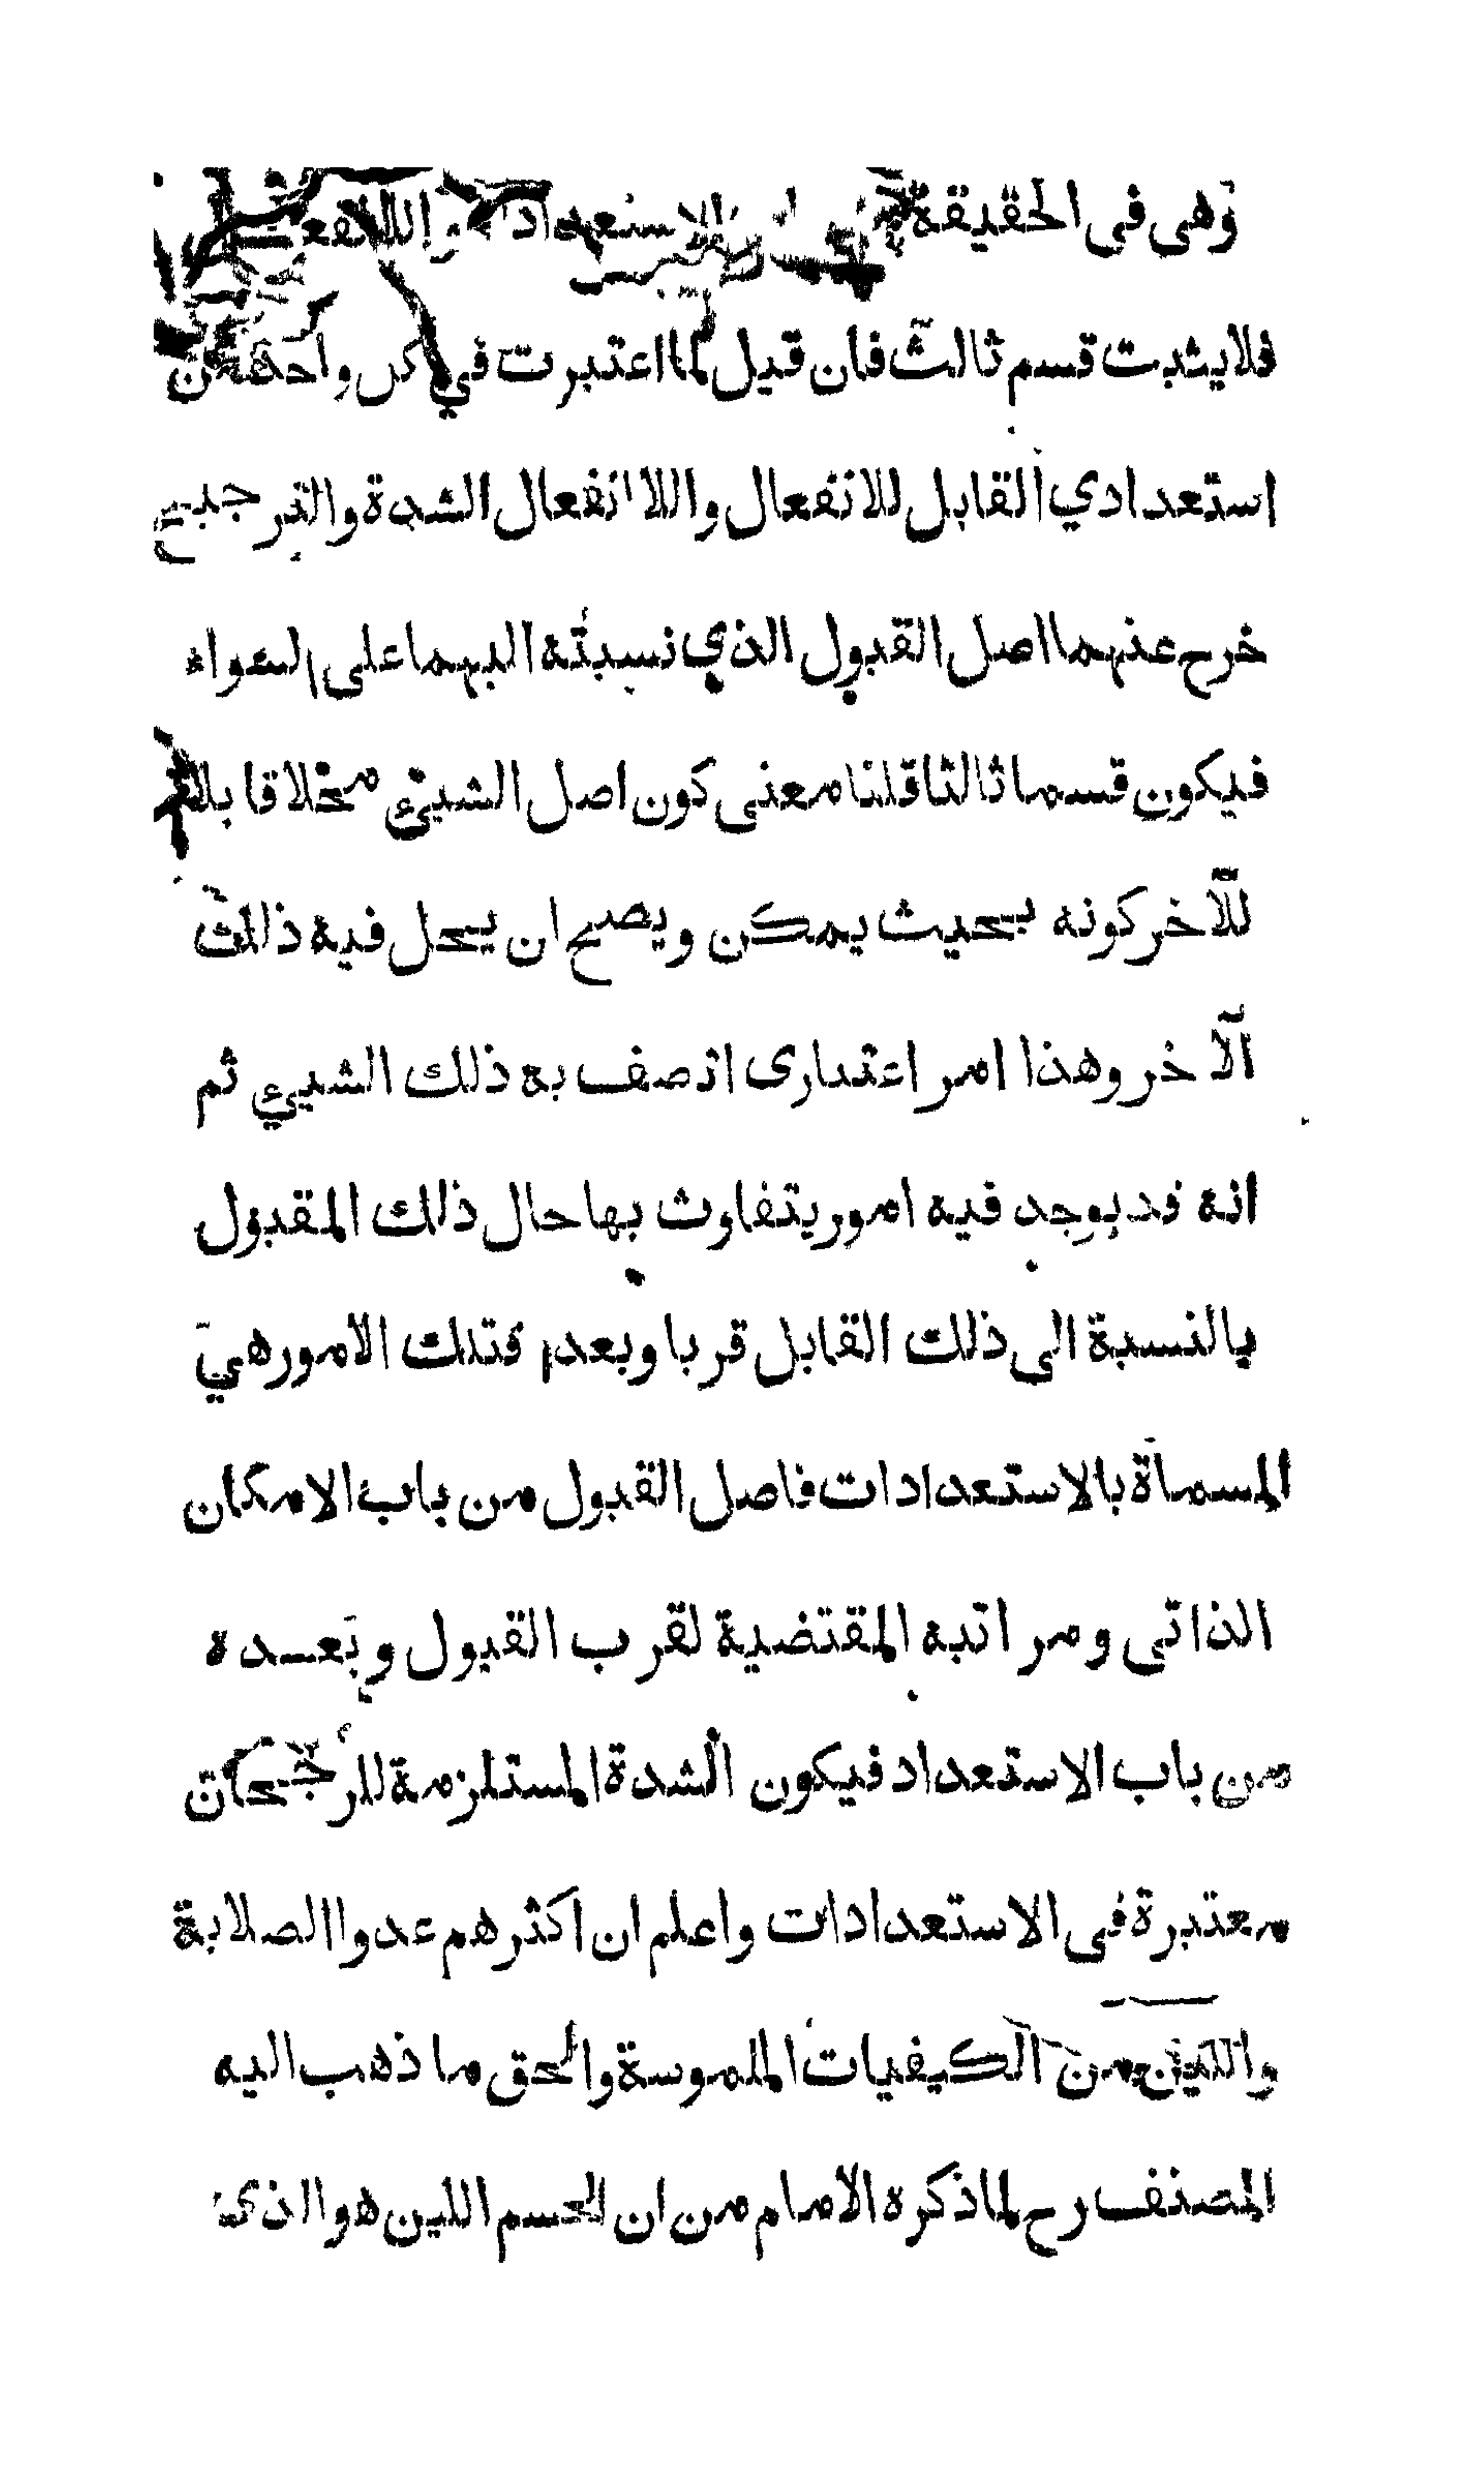 وهى فى الحقيقة الاستعداد
فلا يثبت قسم ثالث فان قيل لما اعتبرت في كل واحد من
استعدادي القابل للانفعال واللا انفعال الشدة والترجيح
خرج عنهما اصل القبول الذي نسبته اليهما على السواء
فيكون قسما ثالثا قلنا معنى كون اصل الشيئ محلا قابلا
للآخر كونه بحيث يمكن ويصح ان يحل فيه ذلك
الآخر وهذا امر اعتبارى اتصف به ذلك الشيئ ثم
انه قد يوجد فيه امور يتفاوت بها حال ذلك المقبول
بالنسبة الى ذلك القابل قربا وبعدا فتلك الامور هي
المسماة بالاستعدادات فاصل القبول من باب الامكان
الذاتى ومراتبه المقتضية لقرب القبول وبعده
من باب الاستعداد فيكون الشدة المستلزمة للرجحان
معتبرة فى الاستعدادات واعلم ان اكثرهم عدوا الصلابة
واللين من الكيفيات الملموسة والحق ما ذهب اليه
المصنف رح لما ذكره الامام من ان الجسم اللين هو الذى